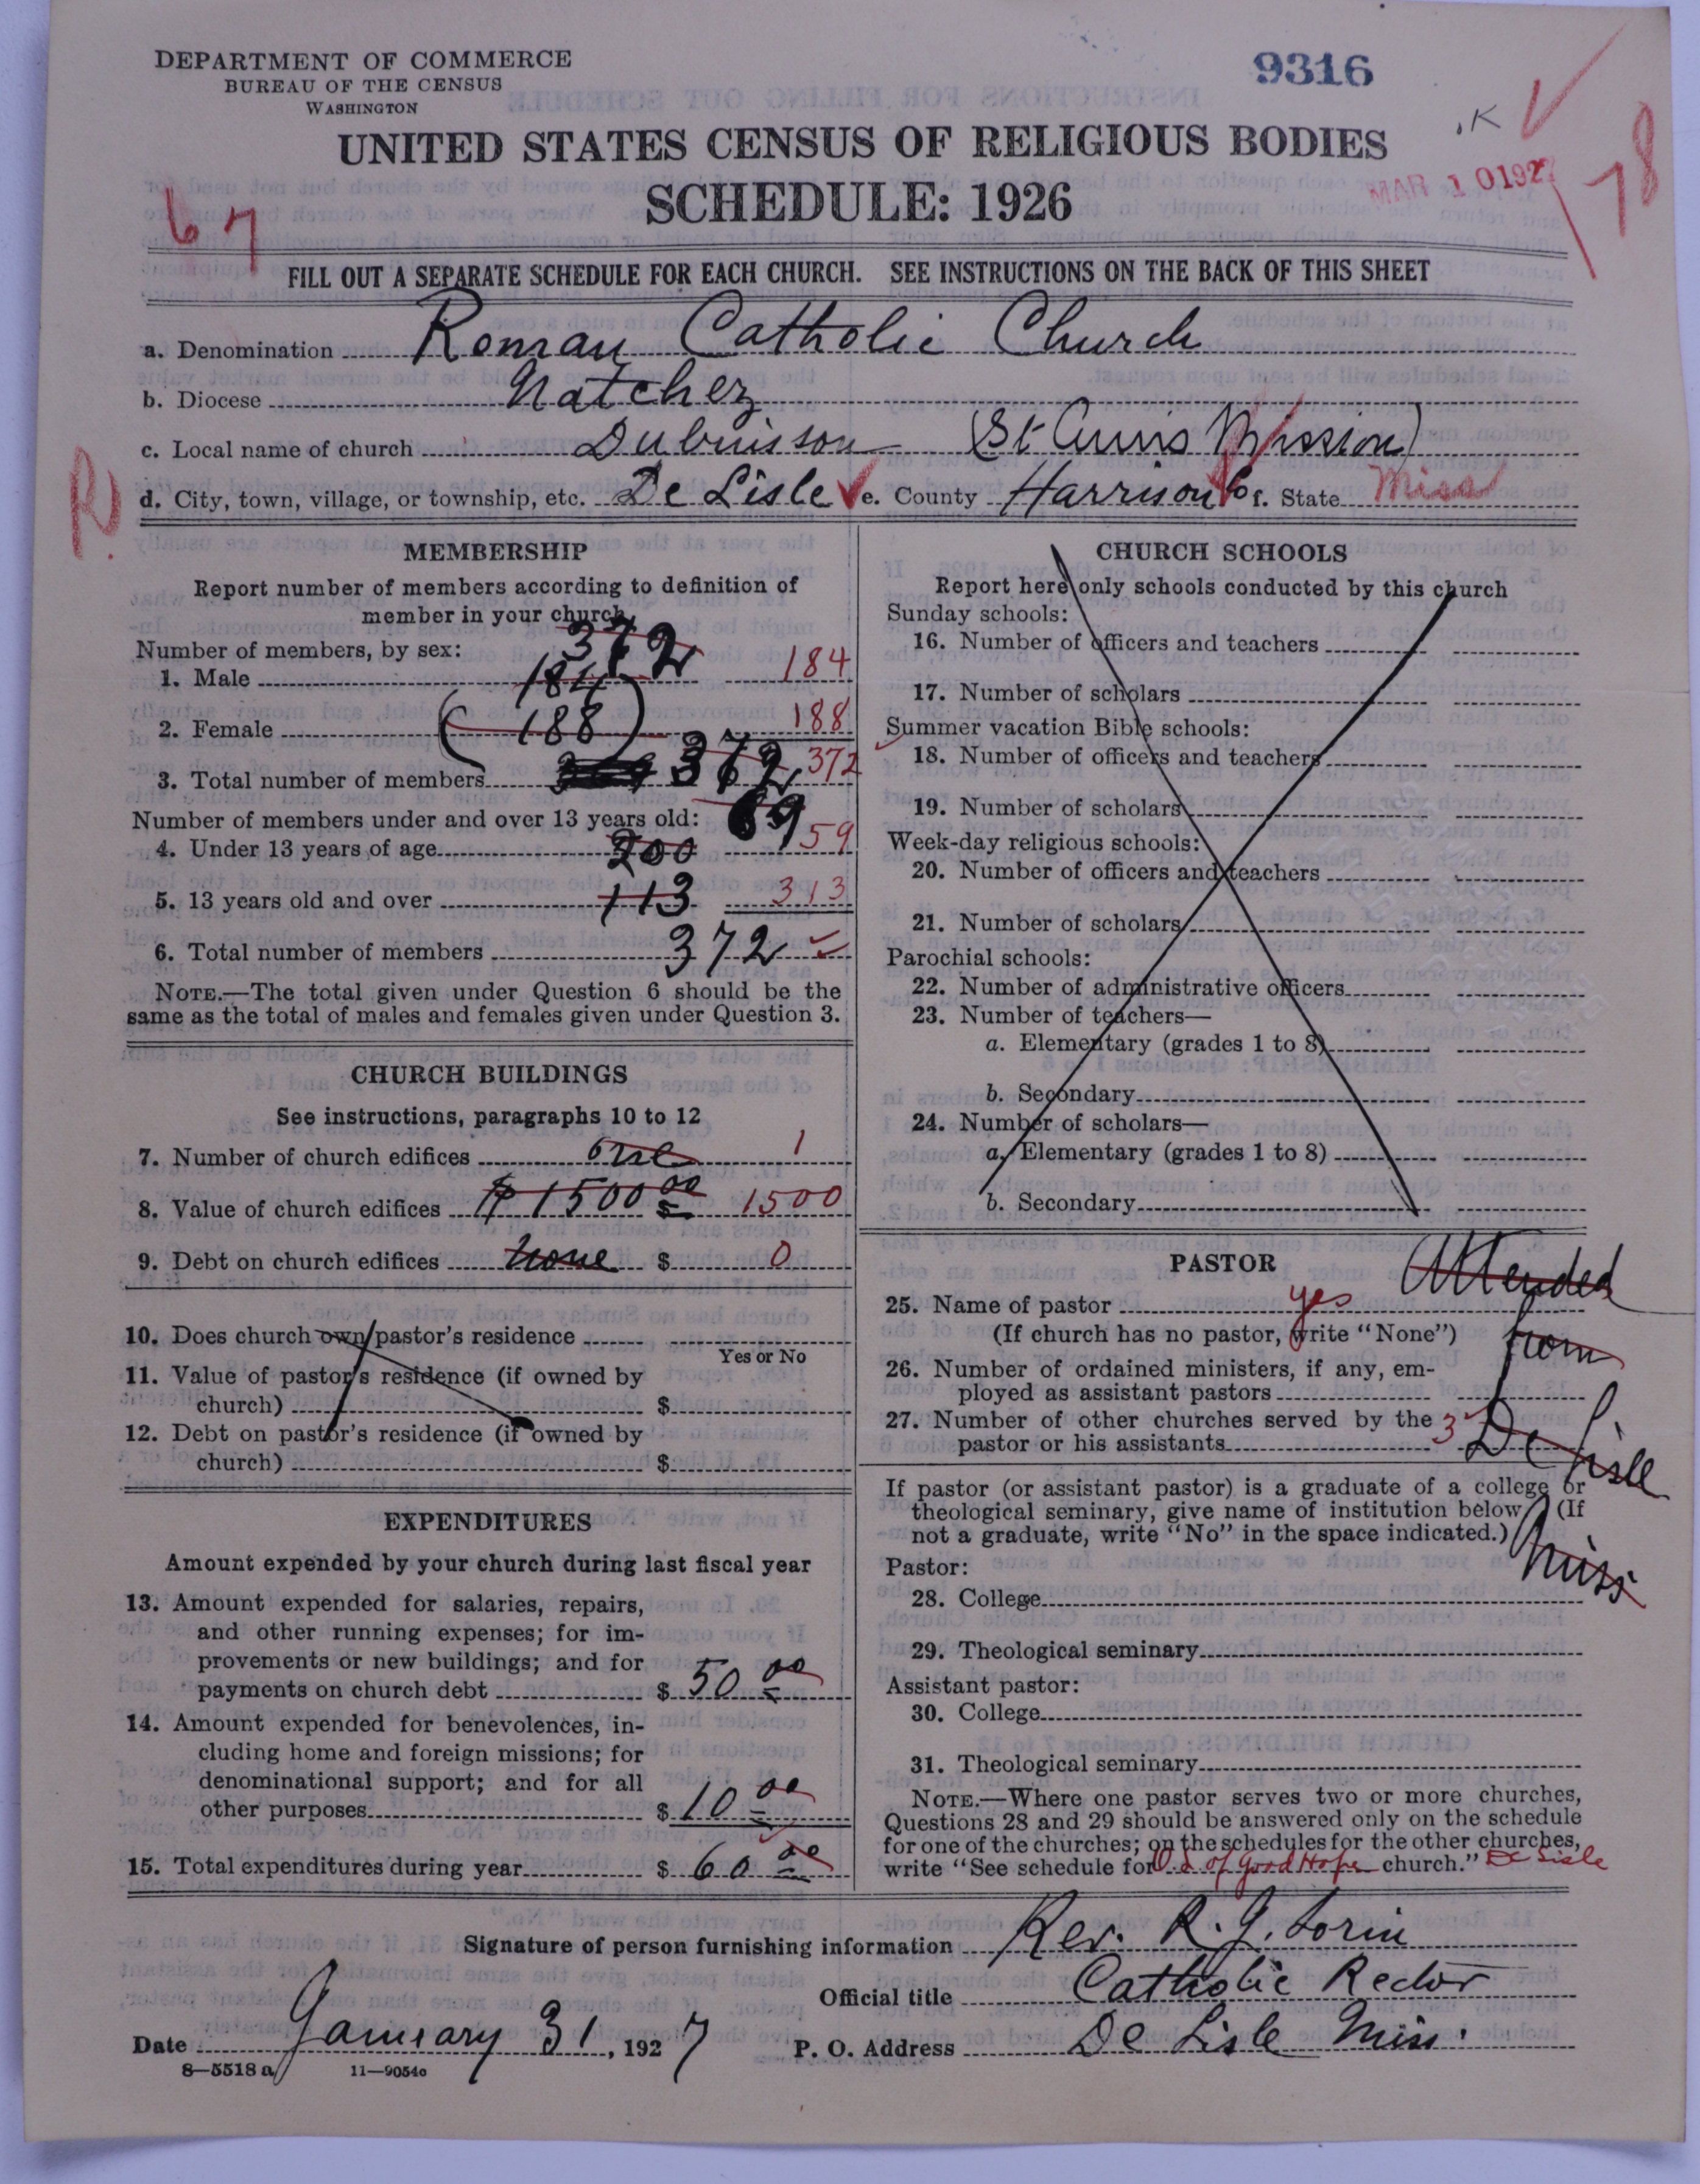 DEPARTMENT OF COMMERCE
BUREAU OF THE CENSUS
WASHINGTON
9316
.K
UNITED STATES CENSUS OF RELIGIOUS BODIES
MAR 10 1927
78
SCHEDULE: 1926
67
FILL OUT A SEPARATE SCHEDULE FOR EACH CHURCH. SEE INSTRUCTIONS ON THE BACK OF THIS SHEET
a. Denomination Roman Catholic Church
b. Diocese Natchez
c. Local name of church Dubuisson (St Anns Mission)
R d. City, town, village, or township, etc. De Lisle e. County Harrison Co f. State Miss
MEMBERSHIP
Report number of members according to definition of
member in your church.
Number of members, by sex: 372
1. Male 184 184
2. Female (188) 188
3. Total number of members 372 372
Number of members under and over 13 years old: 69
4. Under 13 years of age 200 59
5. 13 years old and over 113 313
6. Total number of members 372
NOTE.—The total given under Question 6 should be the
same as the total of males and females given under Question 3.
CHURCH BUILDINGS
See instructions, paragraphs 10 to 12
7. Number of church edifices one 1
8. Value of church edifices $1500 00 1500
9. Debt on church edifices none $ 0
10. Does church own pastor's residence
Yes or No
11. Value of pastor's residence (if owned by
church) $
12. Debt on pastor's residence (if owned by
church) $
EXPENDITURES
Amount expended by your church during last fiscal year
13. Amount expended for salaries, repairs,
and other running expenses; for im-
provements or new buildings; and for
payments on church debt $ 50 00
14. Amount expended for benevolences, in-
cluding home and foreign missions; for
denominational support; and for all
other purposes $ 10 00
15. Total expenditures during year $ 60 00
CHURCH SCHOOLS
Report here only schools conducted by this church
Sunday schools:
16. Number of officers and teachers
17. Number of scholars
Summer vacation Bible schools:
18. Number of officers and teachers
19. Number of scholars
Week-day religious schools:
20. Number of officers and teachers
21. Number of scholars
Parochial schools:
22. Number of administrative officers
23. Number of teachers—
a. Elementary (grades 1 to 8)
b. Secondary
24. Number of scholars—
a. Elementary (grades 1 to 8)
b. Secondary
PASTOR
Attended
25. Name of pastor yes
(If church has no pastor, write "None") from
26. Number of ordained ministers, if any, em-
ployed as assistant pastors
27. Number of other churches served by the 3
pastor or his assistants De Lisle
If pastor (or assistant pastor) is a graduate of a college or
theological seminary, give name of institution below. (If
not a graduate, write "No" in the space indicated.) Miss
Pastor:
28. College
29. Theological seminary
Assistant pastor:
30. College
31. Theological seminary
NOTE.—Where one pastor serves two or more churches,
Questions 28 and 29 should be answered only on the schedule
for one of the churches; on the schedules for the other churches,
write "See schedule for O. L. of Good Hope church." De Lisle
Signature of person furnishing information Rev. R. J. Sorin
Official title Catholic Rector
Date January 31, 1927 P. O. Address De Lisle Miss.
8—5518 a 11—9054c